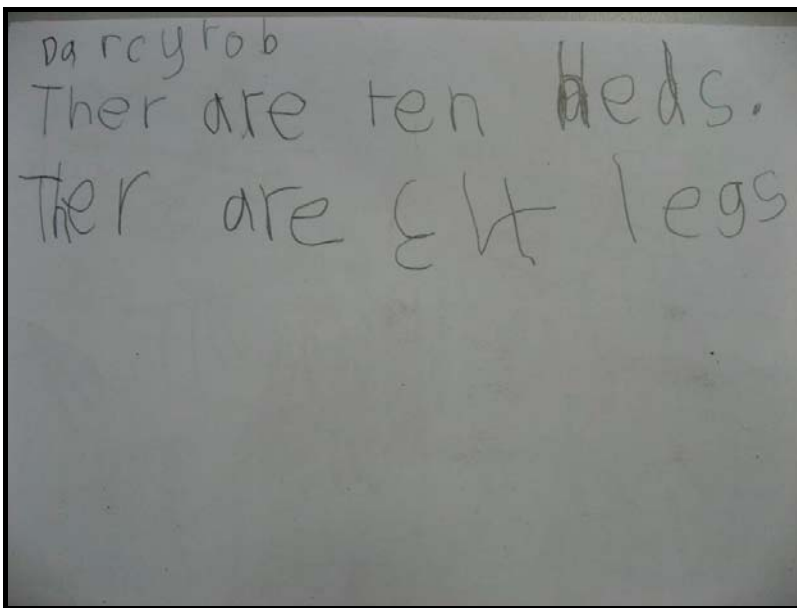 Darcyrob
Ther are ten heds.
Ther are Elt legs